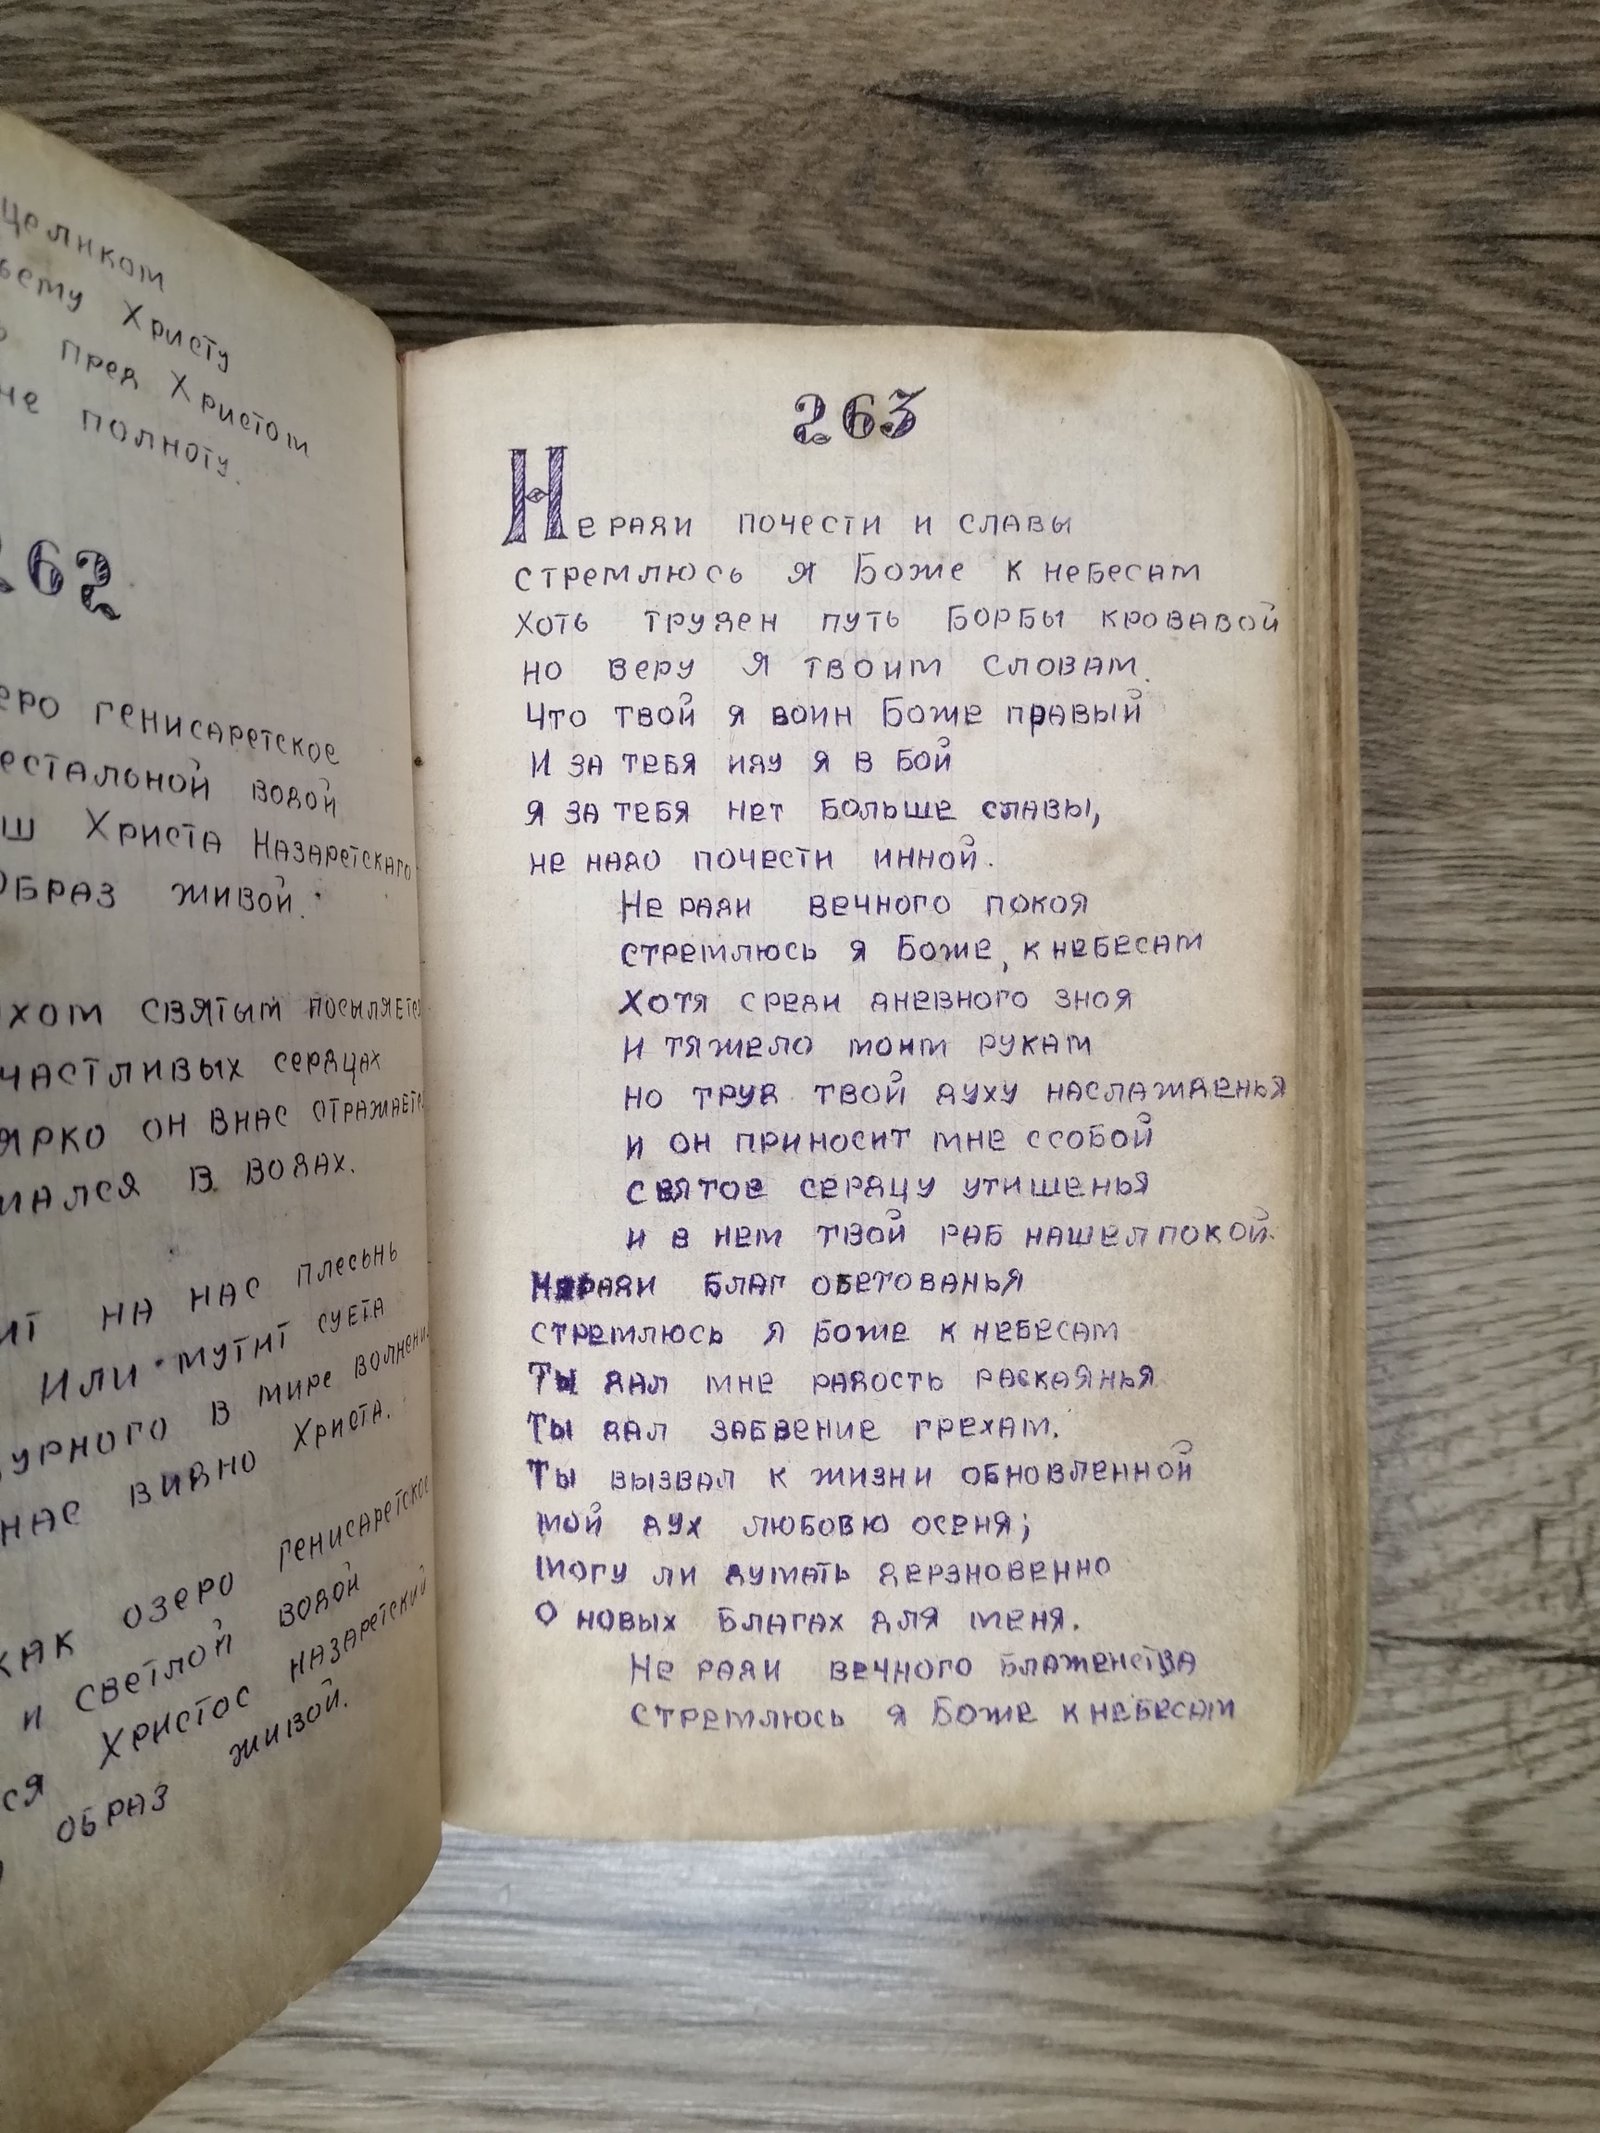 целиком
Христу
пред Христом
не полноту.
262
генисаретское
водой
Христа Назаретскаго
образ живой.
святым посыляется
сердцах
ярко он внас отражается
в водах.
на нас плесьнь
Или мутит суета
в мире волнени
нас видно Христа.
как озеро генисаретское
и светлой водой
Христос назаретский
образ живой.
263
Не ради почести и славы
стремлюсь я Боже к небесам
хоть труден путь борбы кровавой
но веру я твоим словам.
Что твой я воин Боже правый
И за тебя иду я в бой
я за тебя нет больше славы,
не надо почести инной.
Не ради вечного покоя
стремлюсь я Боже, к небесам
Хотя среди дневного зноя
и тяжело моим рукам
но труд твой духу наслажденья
и он приносит мне ссобой
святое сердцу утишенья
и в нем твой раб нашел покой.
Не ради благ обетованья
стремлюсь я Боже к небесам
Ты дал мне радость раскаянья
Ты дал забвение грехам.
Ты вызвал к жизни обновленной
мой дух любовю осеня;
Могу ли думать дерзновенно
О новых благах для меня.
Не ради вечного блаженства
стремлюсь я Боже к небесам